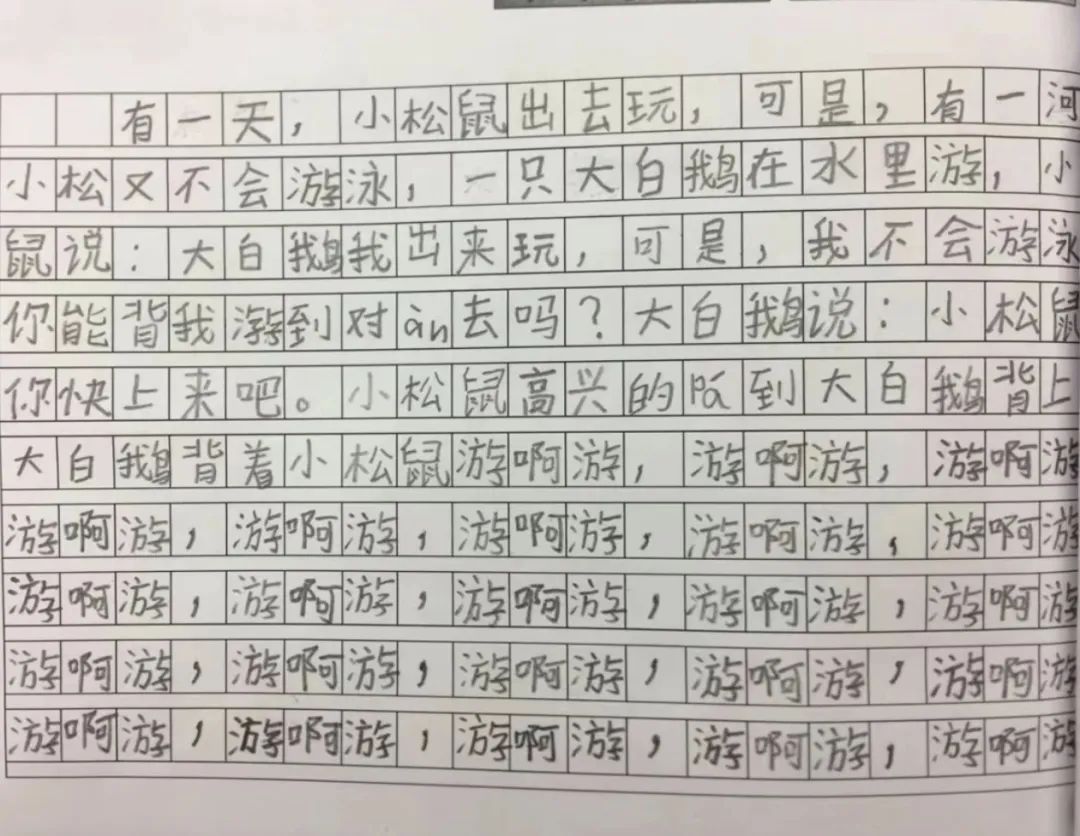 有一天，小松鼠出去玩，可是，有一河
小松又不会游泳，一只大白鹅在水里游，小
鼠说：大白鹅我出来玩，可是，我不会游泳
你能背我游到对àn去吗？大白鹅说：小松鼠
你快上来吧。小松鼠高兴的pá到大白鹅背上
大白鹅背着小松鼠游啊游，游啊游，游啊游
游啊游，游啊游，游啊游，游啊游，游啊游
游啊游，游啊游，游啊游，游啊游，游啊游
游啊游，游啊游，游啊游，游啊游，游啊游
游啊游，游啊游，游啊游，游啊游，游啊游